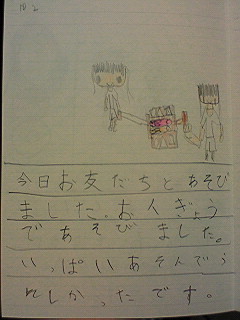 今日お友だちとあそび
ました。おんぎょう
であそびました。
いっぱいあそんでう
れしかったです。